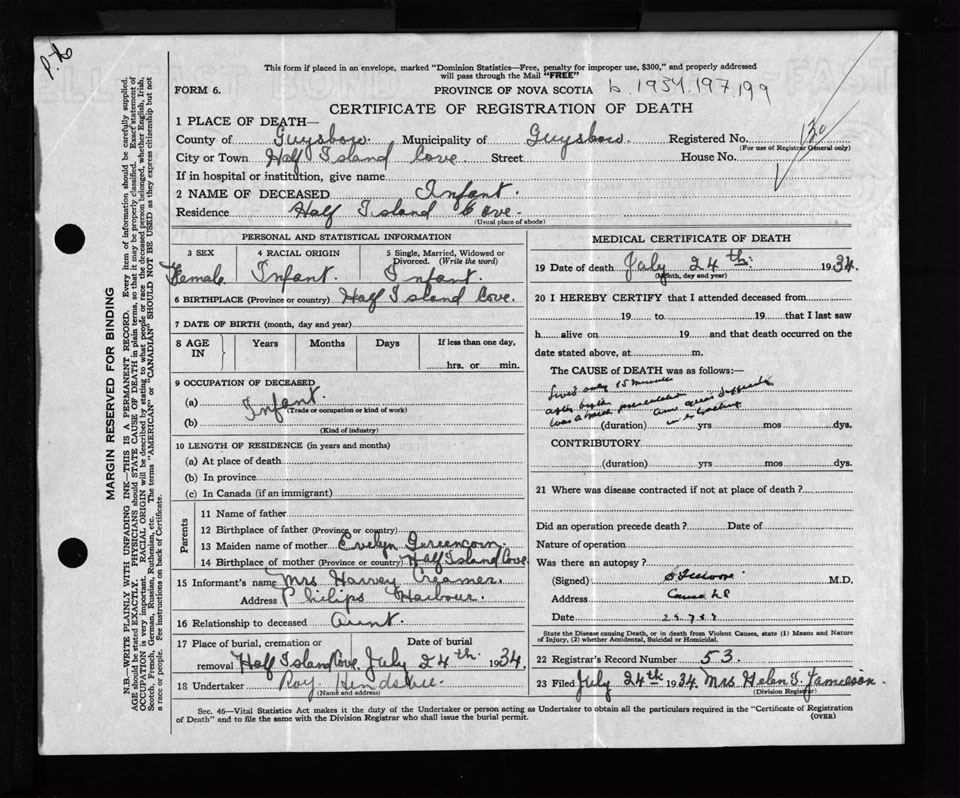 This form if placed in an envelope, marked "Dominion Statistics—Free, penalty for improper use, $300," and properly addressed
will pass through the Mail "FREE"
FORM 6.
PROVINCE OF NOVA SCOTIA
CERTIFICATE OF REGISTRATION OF DEATH
1 PLACE OF DEATH—
County of Guysboro. Municipality of Guysboro Registered No. 130
(For use of Registrar General only)
City or Town Half Island Cove Street House No.
If in hospital or institution, give name
2 NAME OF DECEASED Infant.
Residence Half Island Cove.
(Usual place of abode)
PERSONAL AND STATISTICAL INFORMATION
3 SEX 4 RACIAL ORIGIN 5 Single, Married, Widowed or
Divorced. (Write the word)
Female Infant. Infant.
6 BIRTHPLACE (Province or country) Half Island Cove.
7 DATE OF BIRTH (month, day and year)
8 AGE IN Years Months Days If less than one day,
hrs. or min.
9 OCCUPATION OF DECEASED
(a) Infant.
(Trade or occupation or kind of work)
(b)
(Kind of industry)
10 LENGTH OF RESIDENCE (in years and months)
(a) At place of death
(b) In province
(c) In Canada (if an immigrant)
Parents
11 Name of father
12 Birthplace of father (Province or country)
13 Maiden name of mother Evelyn Greencorn.
14 Birthplace of mother (Province or country) Half Island Cove
15 Informant's name Mrs Harvey Creamer.
Address Philips Harbour.
16 Relationship to deceased Aunt.
17 Place of burial, cremation or Date of burial
removal Half Island Cove. July 24th. 1934.
18 Undertaker Roy Hendsbee.
(Name and address)
MEDICAL CERTIFICATE OF DEATH
19 Date of death July 24th. 1934.
(Month, day and year)
20 I HEREBY CERTIFY that I attended deceased from
19 to 19 that I last saw
h alive on 19 and that death occurred on the
date stated above, at m.
The CAUSE of DEATH was as follows:—
Lived only 15 minutes
after birth
was a
(duration) yrs mos dys.
CONTRIBUTORY
(duration) yrs mos dys.
21 Where was disease contracted if not at place of death?
Did an operation precede death? Date of
Nature of operation
Was there an autopsy?
(Signed) M.D.
Address Canso N S
Date
State the Disease causing Death, or in death from Violent Causes, state (1) Means and Nature
of Injury, (2) whether Accidental, Suicidal or Homicidal.
22 Registrar's Record Number 53.
23 Filed July 24th. 1934. Mrs Helen T. Jamieson.
(Division Registrar)
Sec. 46—Vital Statistics Act makes it the duty of the Undertaker or person acting as Undertaker to obtain all the particulars required in the "Certificate of Registration
of Death" and to file the same with the Division Registrar who shall issue the burial permit.
(OVER)
MARGIN RESERVED FOR BINDING
N.B.—WRITE PLAINLY WITH UNFADING INK—THIS IS A PERMANENT RECORD. Every item of information should be carefully supplied.
AGE should be stated EXACTLY. PHYSICIANS should STATE CAUSE OF DEATH in plain terms, so that it may be properly classified. Exact statement of
OCCUPATION is very important. RACIAL ORIGIN will be described by stating to what people or race the deceased person belonged, whether English, Irish,
Scotch, French, German, Russian, Ruthenian, etc. The terms "AMERICAN" or "CANADIAN" SHOULD NOT BE USED as they express citizenship but not
a race or people. See instructions on back of Certificate.